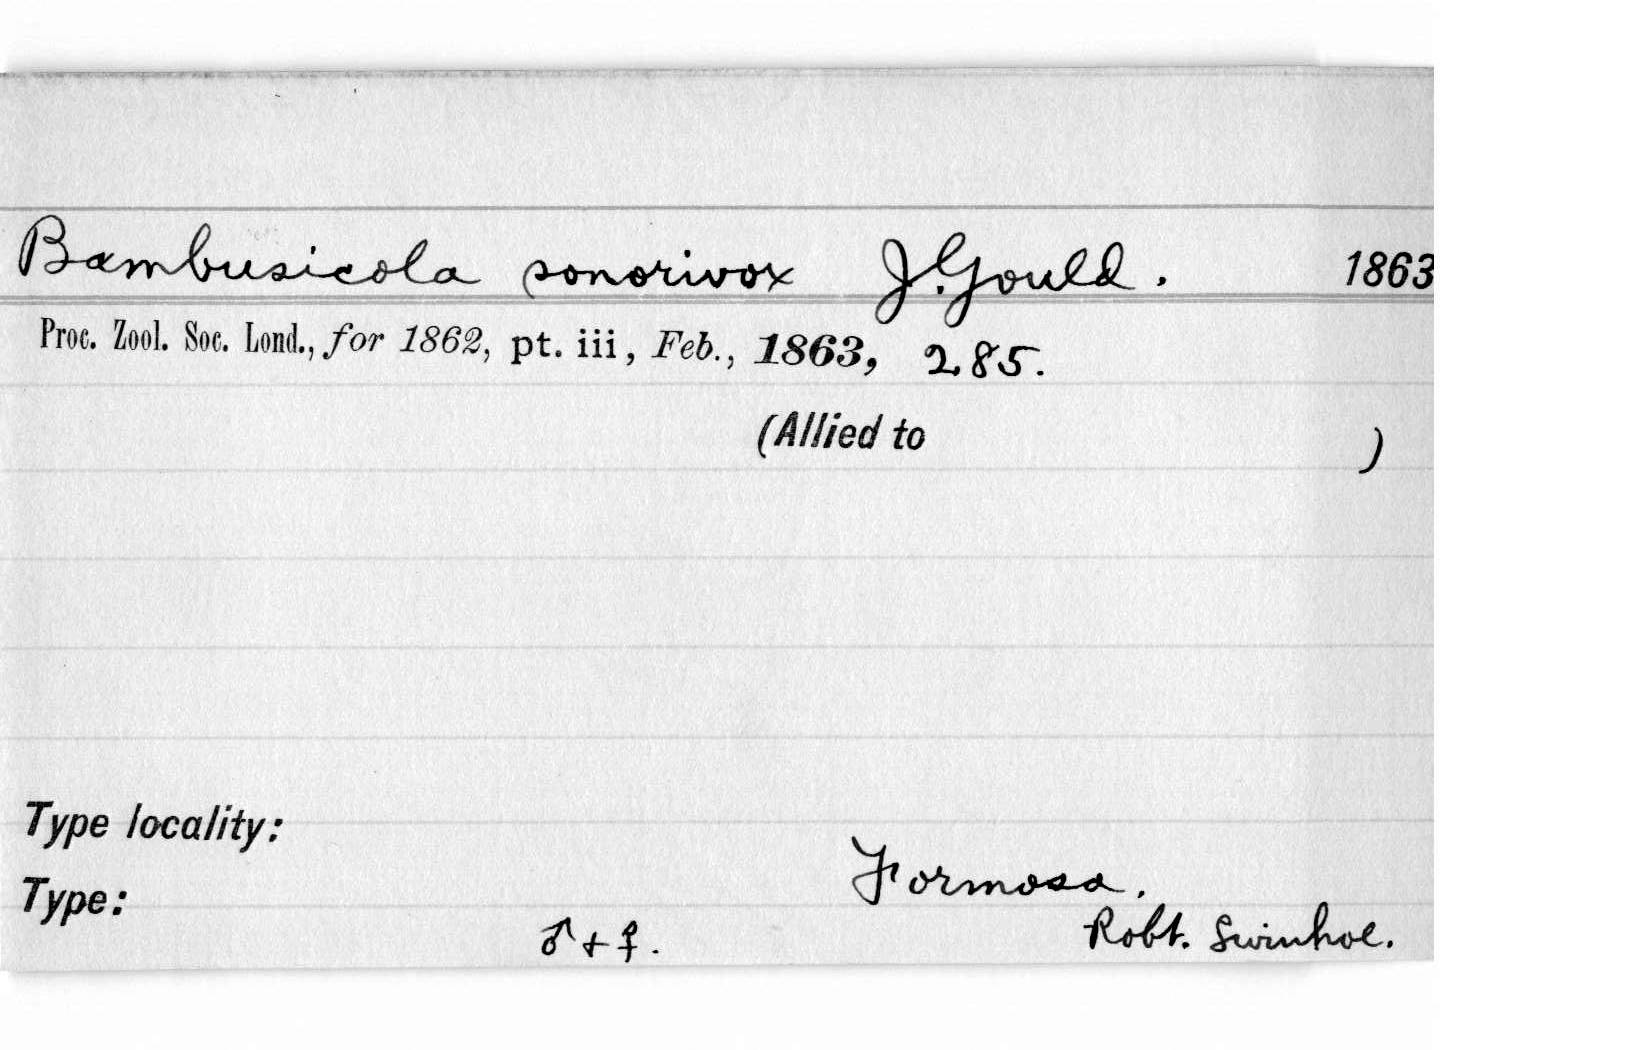 Bambusicola sonorivox J. Gould. 1863
Proc. Zool. Soc. Lond., for 1862, pt. iii, Feb., 1863, 285.
(Allied to )
Type locality: Formosa.
Type: ♂ + ♀. Robt. Swinhoe.